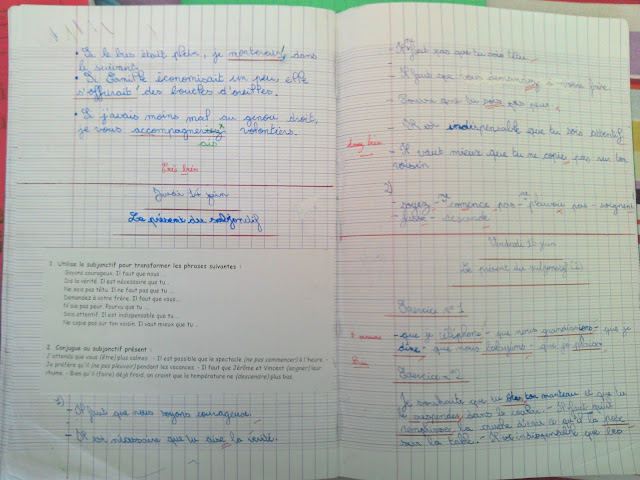 • Si le bus était plein, je monterais dans
le suivant.
• Si Camille économisait un peu, elle
s'offrirait des boucles d'oreilles.
• Si j'avais moins mal au genou droit,
je vous accompagnerez volontiers.
ais
Très bien
Jeudi 14 juin
Le présent du subjonctif
1. Utilise le subjonctif pour transformer les phrases suivantes :
Soyons courageux. Il faut que nous ...
Dis la vérité. Il est nécessaire que tu ...
Ne sois pas têtu. Il ne faut pas que tu ...
Demandez à votre frère. Il faut que vous ...
N'aie pas peur. Pourvu que tu ...
Sois attentif. Il est indispensable que tu ...
Ne copie pas sur ton voisin. Il vaut mieux que tu ...
2. Conjugue au subjonctif présent :
J'attends que vous (être) plus calmes. - Il est possible que le spectacle (ne pas commencer) à l'heure. -
Je préfère qu'il (ne pas pleuvoir) pendant les vacances. - Il faut que Jérôme et Vincent (soigner) leur
rhume. - Bien qu'il (faire) déjà froid, on craint que la température ne (descendre) plus bas.
1) - Il faut que nous soyons courageux.
- Il est nécessaire que tu dise la vérité.
faut pas que tu sois têtu.
- Il faut que vous à votre frère.
- Pourvu que tu pas peur.
- Il est indispensable que tu sois attentif.
- Il vaut mieux que tu ne copie pas sur ton
voisin
assez bien
2)
- soyez - comence pas - pas - soignent
- - descende
Vendredi 15 juin
Le présent du subjonctif (2)
Exercice n°1
- que je téléphone - que nous grandissions - que je
dise - que nous - que je
Bien
Exercice n°2
Je souhaite que tu ton manteau et que tu
le dans le couloir. - Il faut qu'il
la d'eau et qu'il la
sur la table. - Il est indispensable que les